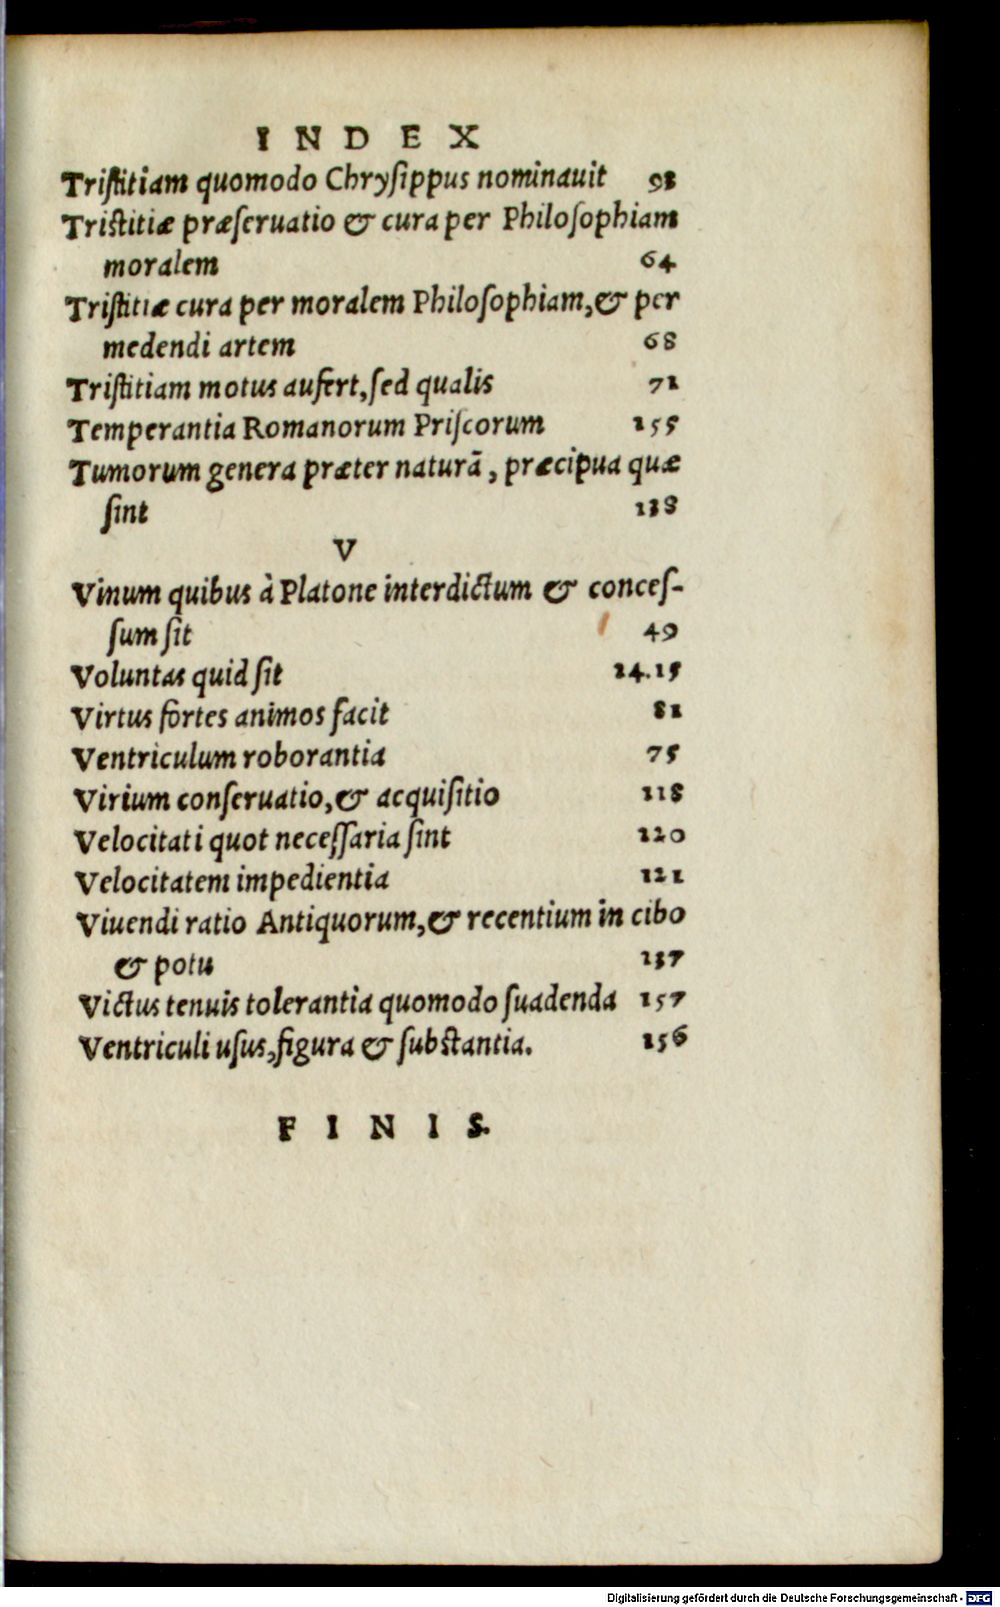 INDEX
Triſtitiam quomodo Chryſippus nominauit 98
Tristitiæ præſeruatio & cura per Philoſophiam
moralem 64
Triſtitiæ cura per moralem Philoſophiam,& per
medendi artem 68
Triſtitiam motus aufert,ſed qualis 71
Temperantia Romanorum Priſcorum 155
Tumorum genera præter naturã, præcipua quæ
ſint 138
V
Vinum quibus à Platone interdictum & conceſ-
ſum ſit 49
Voluntas quid ſit 14.15
Virtus fortes animos facit 81
Ventriculum roborantia 75
Virium conſeruatio,& acquiſitio 118
Velocitati quot neceſſaria ſint 120
Velocitatem impedientia 121
Viuendi ratio Antiquorum,& recentium in cibo
& potu 137
Victus tenuis tolerantia quomodo ſuadenda 157
Ventriculi uſus,figura & ſubſtantia. 156
FINIS.
Digitalisierung gefördert durch die Deutsche Forschungsgemeinschaft - DFG